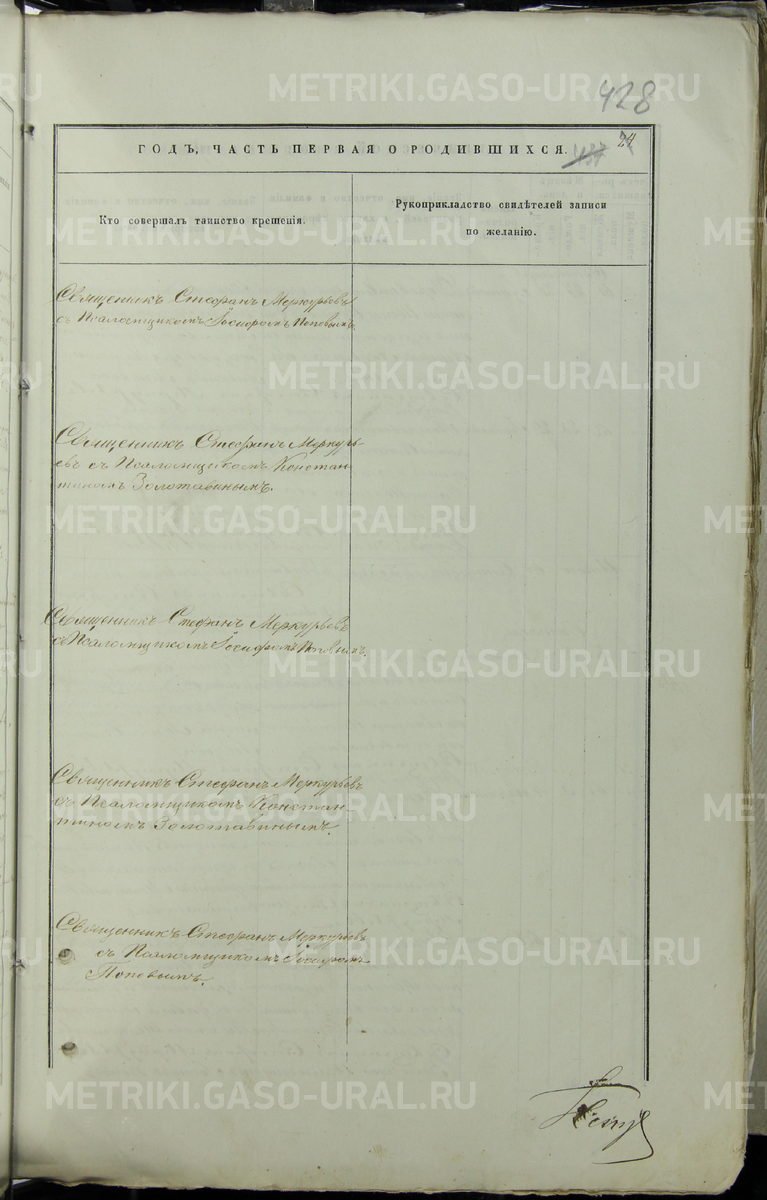 METRIKI.GASO-URAL.RU
428
24
ГОДЪ, ЧАСТЬ ПЕРВАЯ О РОДИВШИХСЯ.
Кто совершалъ таинство крещенія.
Рукоприкладство свидѣтелей записи
по желанію.
Священникъ Стефанъ Меркурьевъ
съ Псаломщикомъ Іосифомъ Поповымъ.
Священникъ Стефанъ Меркурь
евъ съ Псаломщикомъ Констан
тиномъ Золотавинымъ.
Священникъ Стефанъ Меркурьевъ
съ Псаломщикомъ Іосифомъ Поповымъ.
Священникъ Стефанъ Меркурьевъ
съ Псаломщикомъ Констан
тиномъ Золотавинымъ.
Священникъ Стефанъ Меркурьевъ
съ Псаломщикомъ Іосифомъ
Поповымъ.